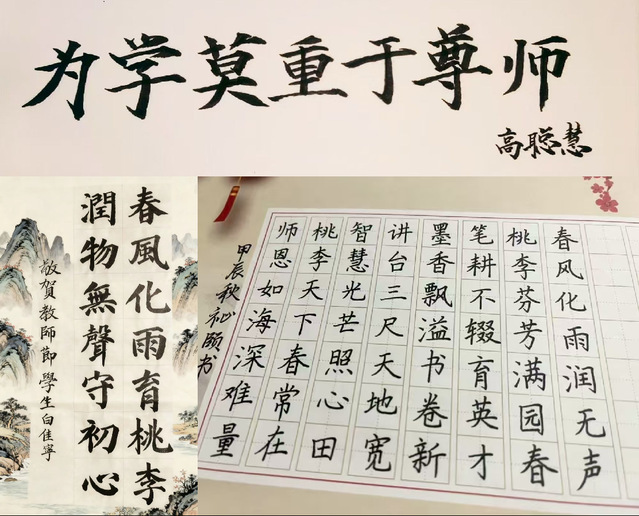 为学莫重于尊师
高聪慧
春風化雨育桃李
潤物無聲守初心
敬賀教師節學生白佳寧
春风化雨润无声
桃李芬芳满园春
笔耕不辍育英才
墨香飘溢书卷新
讲台三尺天地宽
智慧光芒照心田
桃李天下春常在
师恩如海深难量
甲辰秋祉颐书